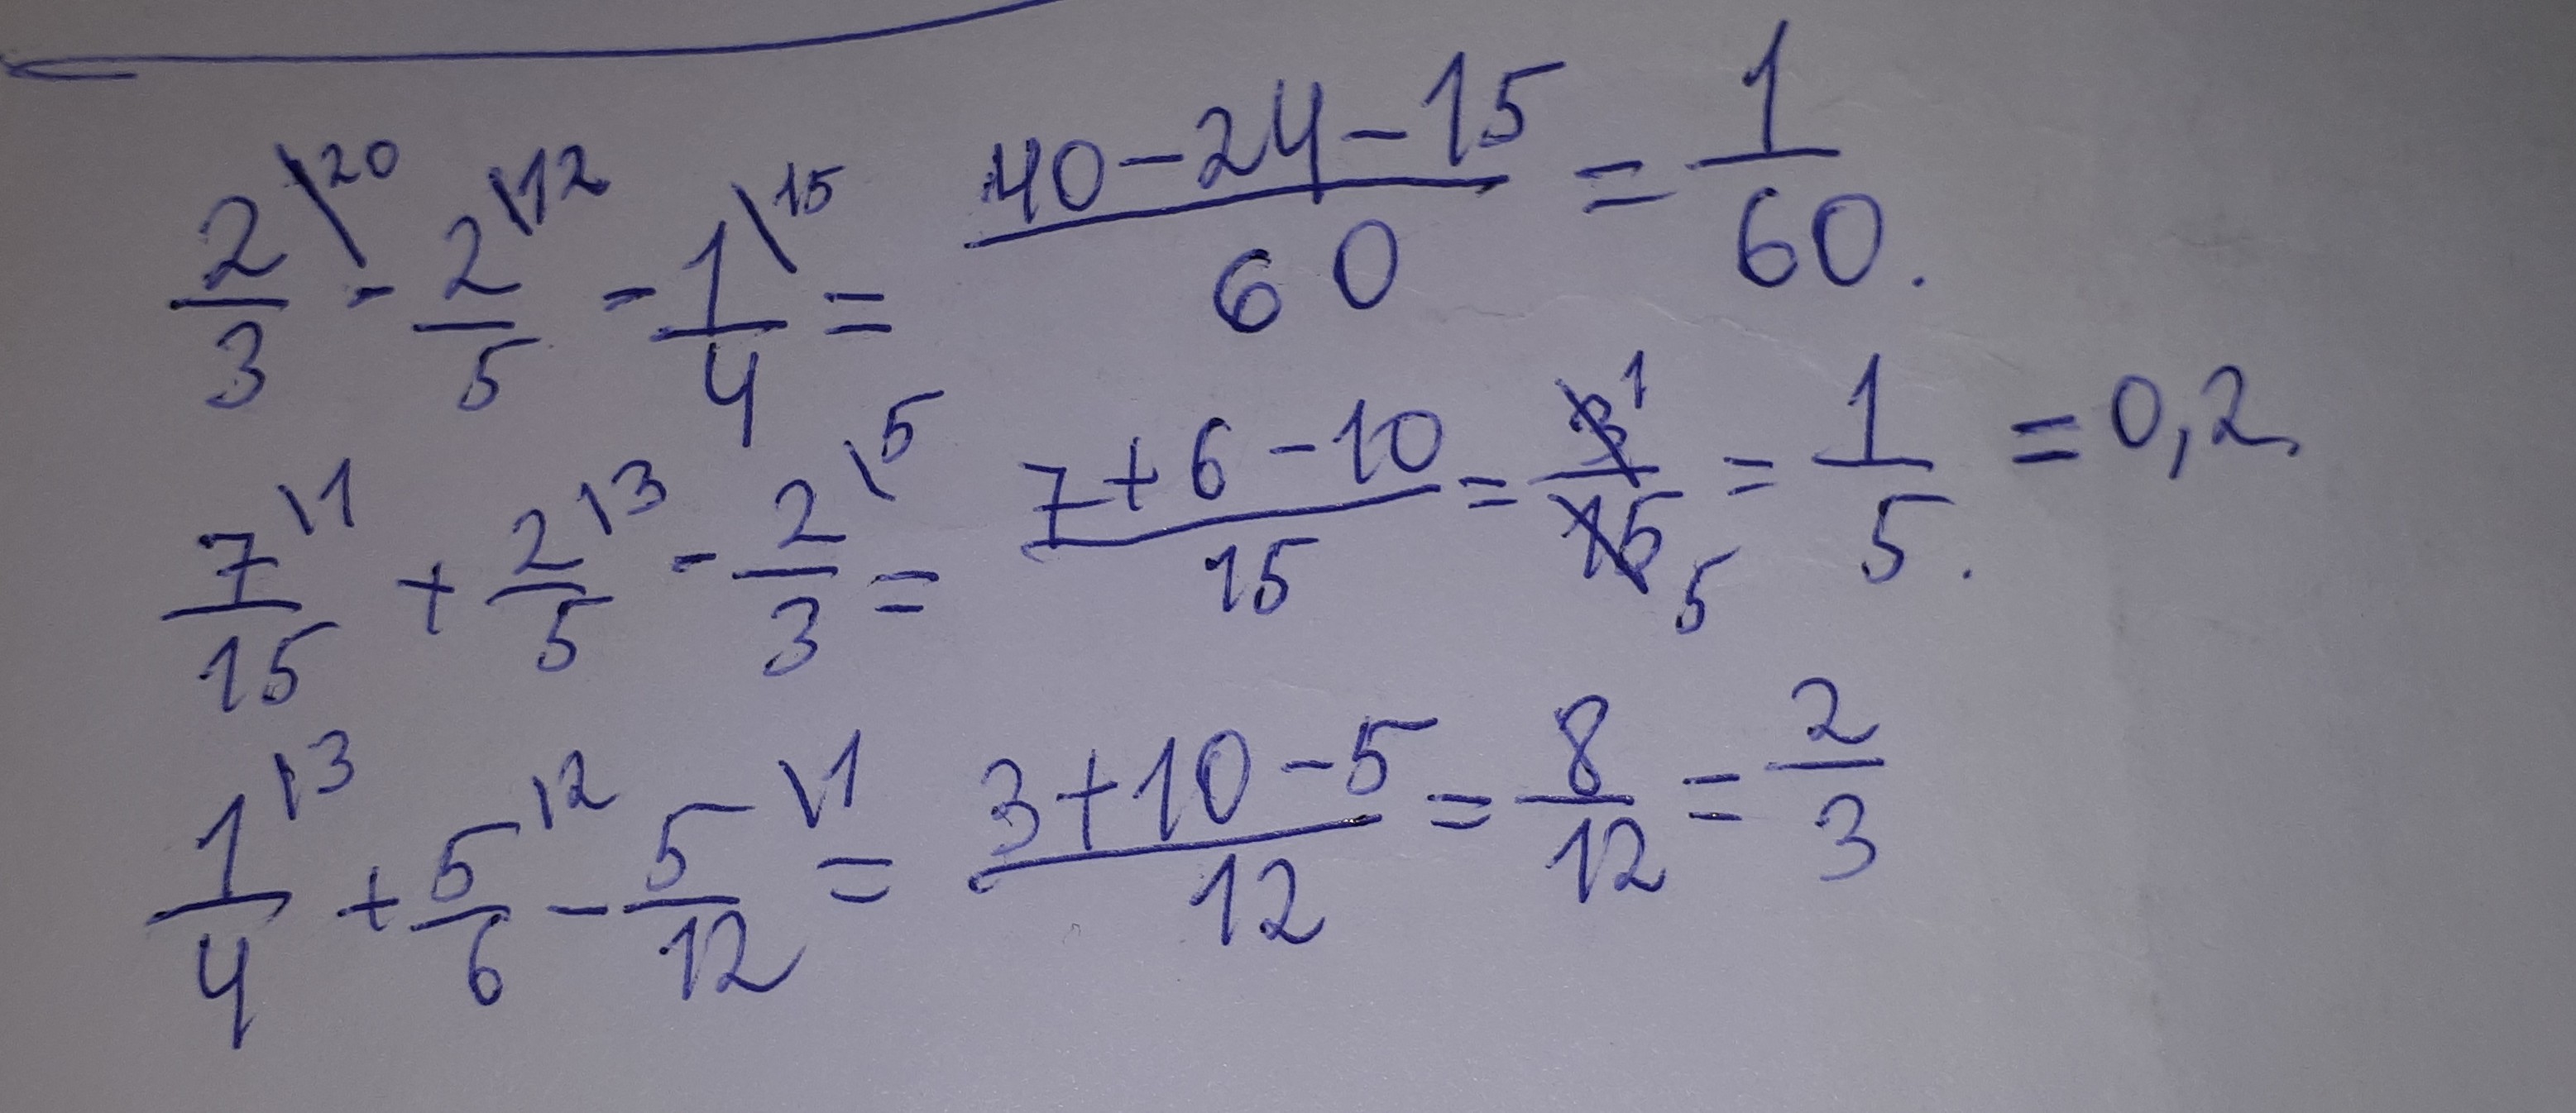 2/3 \20 - 2/5 \12 - 1/4 \15 = (40-24-15)/60 = 1/60.
7/15 \1 + 2/5 \3 - 2/3 \5 = (7+6-10)/15 = 3 1/15 5 = 1/5. = 0,2.
1/4 \3 + 5/6 \2 - 5/12 \1 = (3+10-5)/12 = 8/12 = 2/3